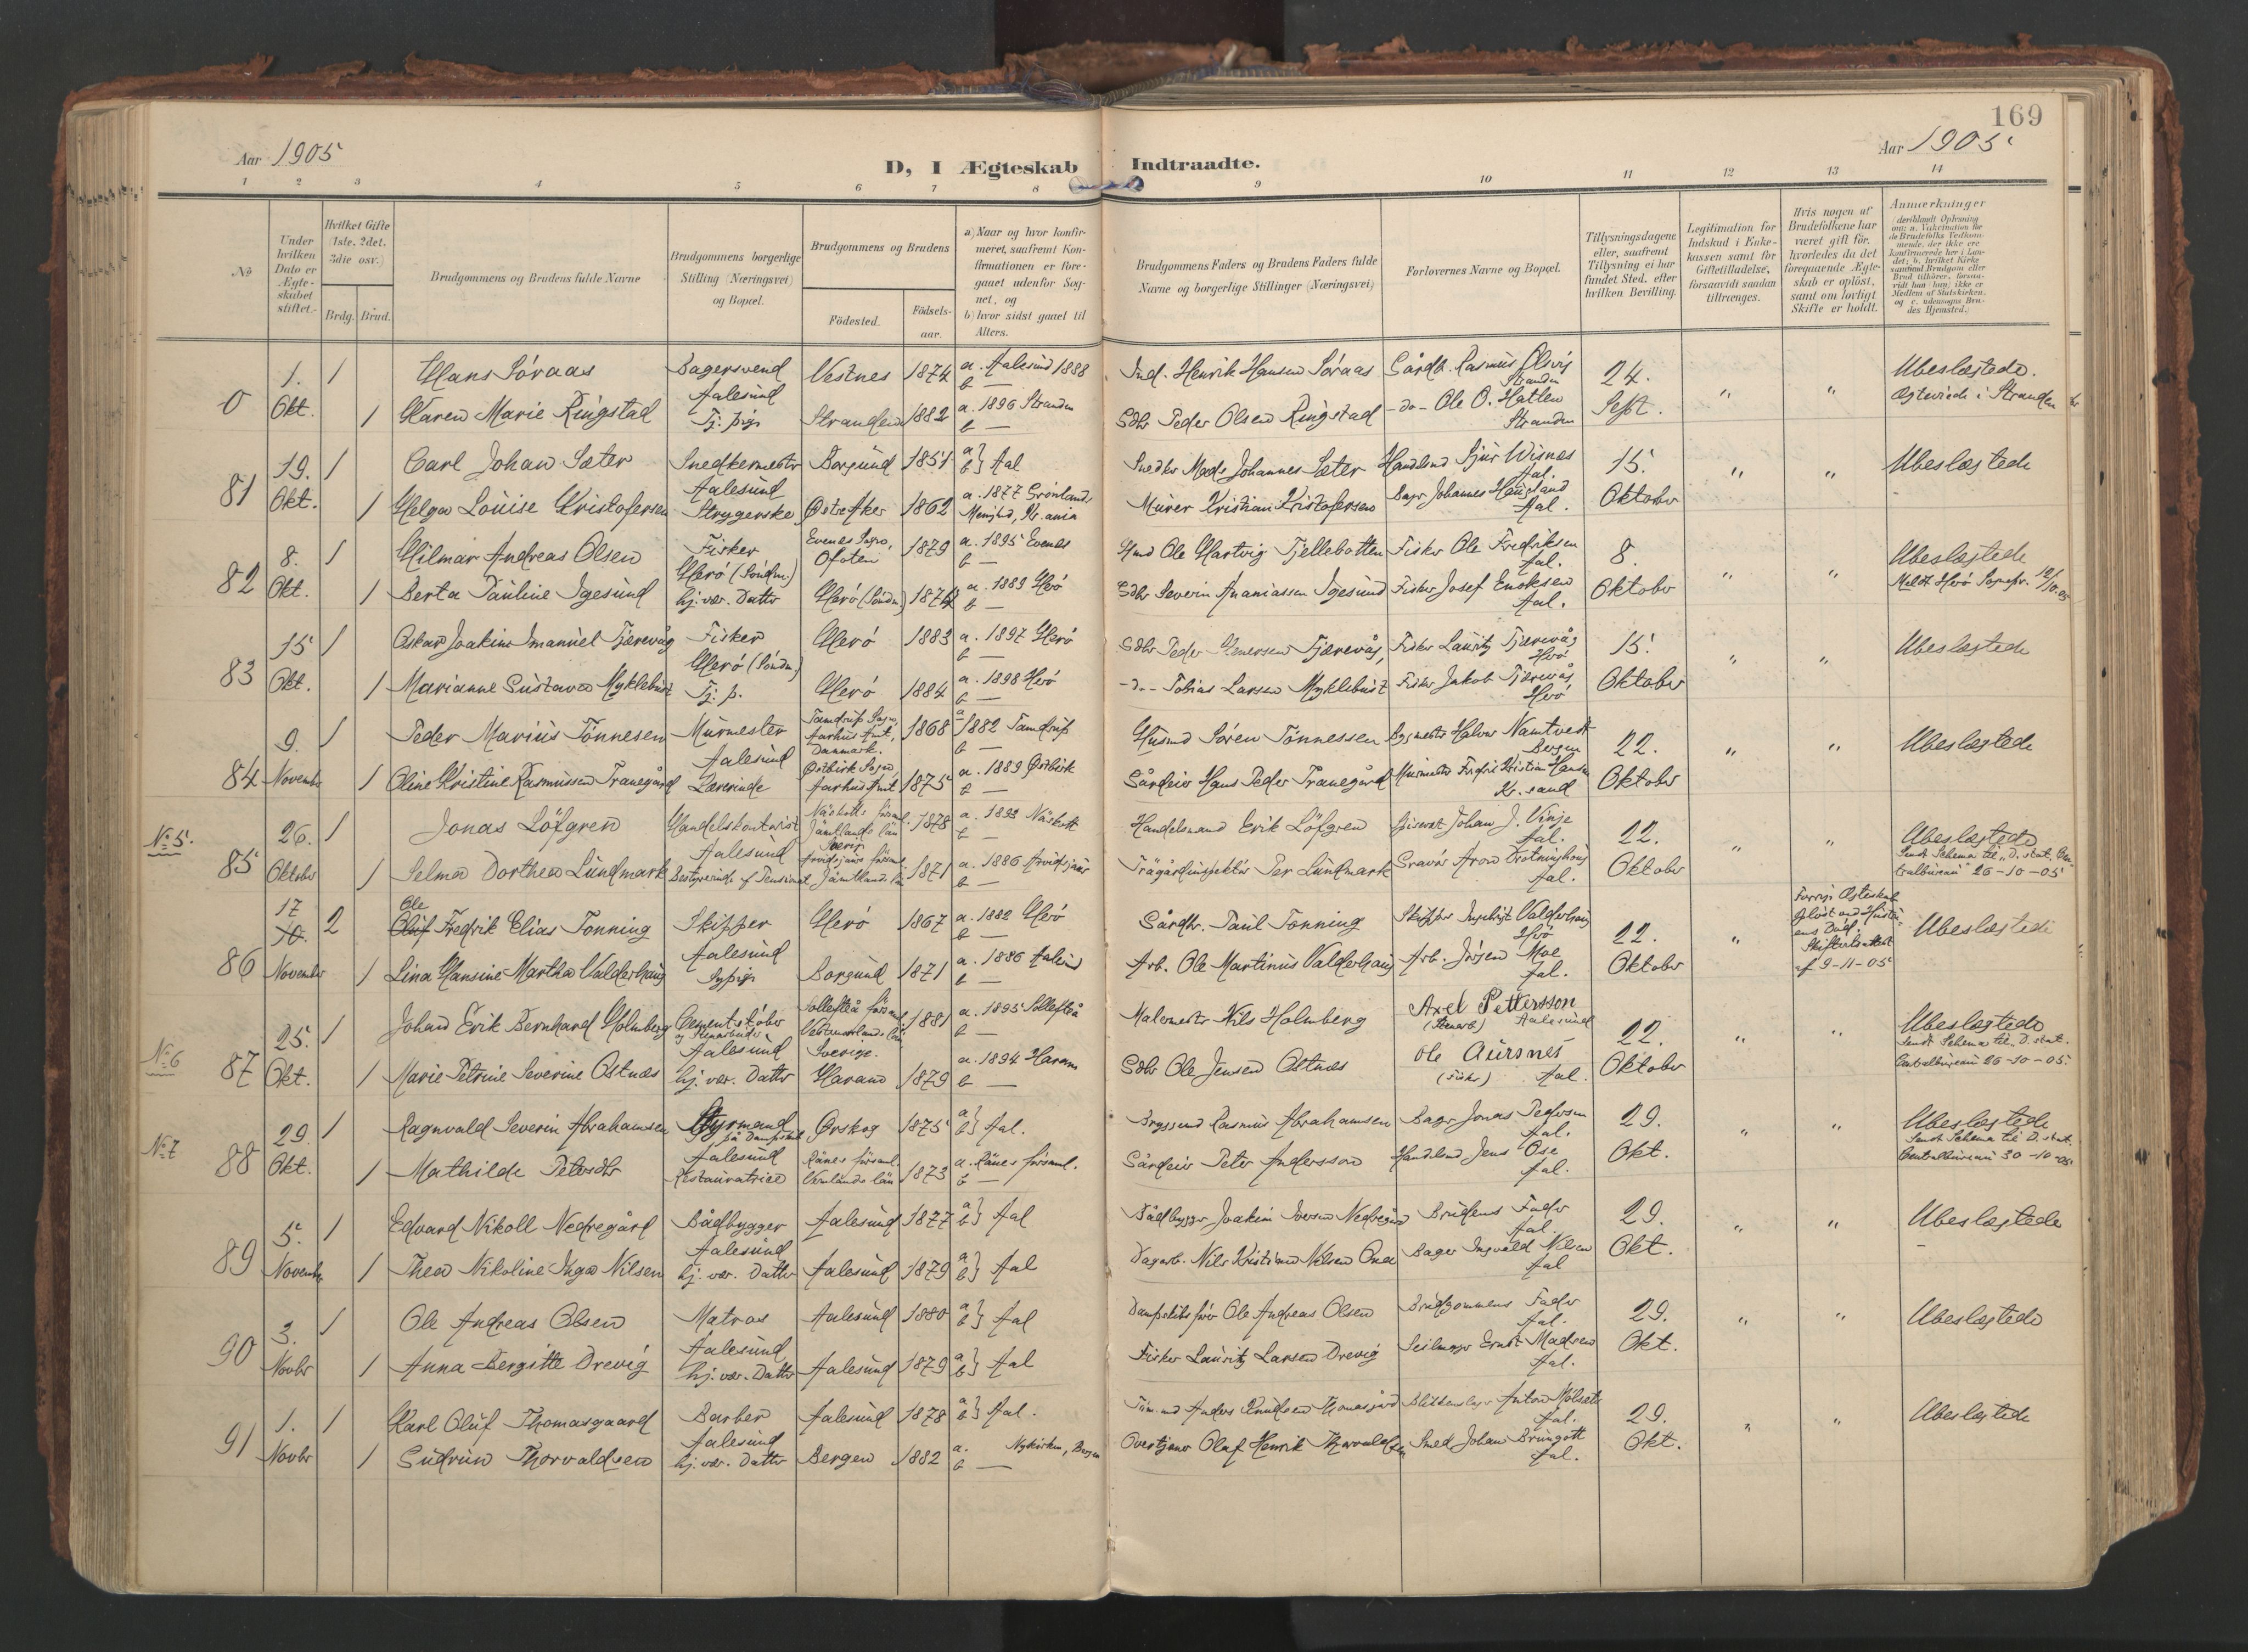 169
Aar 1905
D, I Ægteskab Indtraadte.
Aar 1905.
1 2 3 4 5 6 7 8 9 10 11 12 13 14
No
Under hvilken Dato er Ægteskabet stiftet.
Hvilket Gifte (1ste, 2det, 3die osv.)
Brdg. Brud.
Brudgommens og Brudens fulde Navne
Brudgommens borgerlige Stilling (Næringsvei) og Bopæl.
Brudgommens og Brudens
Födested.
Födselsaar.
a) Naar og hvor konfirmeret, saafremt Konfirmationen er foregaaet udenfor Sognet, og
b) hvor sidst gaaet til Alters.
Brudgommens Faders og Brudens Faders fulde Navne og borgerlige Stillinger (Næringsvei)
Forlovernes Navne og Bopæl.
Tillysningsdagene eller, saafremt Tillysning ei har fundet Sted, efter hvilken Bevilling.
Legitimation for Indskud i Enkekassen samt for Giftetilladelse, forsaavidt saadan tiltrænges.
Hvis nogen af Brudefolkene har været gift før, hvorledes da det foregaaende Ægteskab er opløst, samt om lovligt Skifte er holdt.
Anmærkninger
0
1. 1 Hans Søraas Bagersvend Vestnes 1874 a. Aalesund 1888 Ind. Henrik Hansen Søraas Gårdb. Rasmus Ølsvig Stranden 24. " " Ubeslægtede.
Okt. 1 Karen Marie Ringstad Aalesund Tj. pige Stranden 1882 a. 1896 Stranden b — Gdbr Peder Olsen Ringstad -do- Ole O. Hatlen Stranden Sept. Ægteviede i Stranden
81
19. 1 Carl Johan Sæter Snedkermester Borgund 1851 a b } Aal Snedker Mads Johannes Sæter Handelsmd Sjur Wisnes Aal. 15. " " Ubeslægtede
Okt. 1 Helga Louise Kristofersen Aalesund Strygerske Østre Aker 1862 a. 1877 Grønlands Menighed, Kr.ania Murer Kristian Kristofersen Bager Johannes Haugland Aal. Oktober
82
8. 1 Hilmar Andreas Olsen Fisker Evenes Sogn, Ofoten 1879 a. 1895 Evenes b — Ole Hartvig Tjellebotten Fisker Ole Fredriksen Aal. 8. " " Ubeslægtede
Okt. 1 Berta Pauline Igesund Herö (Söndm.) hj. vær. Datter Herö (Söndm) 1874 a. 1889 Herö b — Gdbr Severin Ananiassen Igesund Fisker Josef Enoksen Aal. Oktober Meldt Herö Sognepr. 12/10.05
83
15 1 Oskar Joakim Imanuel Tjærevåg Fisker Herö 1883 a. 1897 Herö b — Gdbr Peder Tjærevåg, Fisker Lauritz Tjærevåg Herö 15. " " Ubeslægtede
Okt. 1 Marianne Gustava Myklebust Herö (Söndm.) Tj. p. Herö 1884 a. 1898 Herö b — -do- Tobias Larsen Myklebust Fisker Jakob Tjærevåg Herö Oktober
84
9. 1 Peder Marius Tönnesen Murmester Tamdrup Sogn, Aarhus Amt, Danmark. 1868 a 1882 Tamdrup b — Husmd Sören Tönnessen Halvor Namtvedt Bergen 22. " " Ubeslægtede
November 1 Oline Kristine Rasmussen Tranegård Aalesund Lærerinde Østbirk Sogn Aarhus Amt 1875 a. 1889 Østbirk b — Gårdeier Hans Peder Tranegård Murmester Fredrik Kristian Hansen Kr.sand Oktober
No 5.
85
26. 1 Jonas Löfgren Handelskontorist Näskotts församl. Jämtlands län Sverig 1878 a. 1893 Näskott b — Handelsmand Erik Löfgren Johan J. Vinje Aal. 22. " " Ubeslægtede
Oktober 1 Selma Dorthea Lundmark Aalesund Bestyrerinde af Pensionat Arvidsjaurs församl. Jämtlands län 1871 a. 1886 Arvidsjaur b — Trägårdinspektör Per Lundmark Gravör Aron Drotninghaug Aal. Oktober Sendt Schema til "D. stat. Centralbureau" 26-10-05
86
17 10. 2 Ole Oluf Fredrik Elias Tonning Skipper Herö 1867 a. 1882 Herö b — Gårdbr. Paul Tonning Skipper Ingebrigt Valderhaug Herö 22. " Forrige Ægteskab opløst ved Hustruens Død. Skifteattest af 9-11-05 Ubeslægtede
November 1 Lina Hansine Martha Valderhaug Aalesund Sypige Borgund 1871 a. 1886 Aalesund b — Arb. Ole Martinus Valderhaug Arb. Jörgen Moe Aal. Oktober
No 6
87
25. 1 Johan Erik Bernhard Holmberg Cementstøber og Stenarbeider Sollefteå församl. Vesternorrlands län Sverige. 1881 a. 1895 Sollefteå b — Malermester Nils Holmberg Axel Pettersson (Stenarb) Aalesund 22. " " Ubeslægtede
Okt. 1 Marie Petrine Severine Ostnæs Aalesund hj. vær. Datter Haram 1879 a. 1894 Haram b — Gdbr Ole Jensen Ostnæs Ole Aursnes (Fisker) Aal. Oktober Sendt Schema til "D. stat. Centralbureau 26-10-05.
No 7
88
29. 1 Ragnvald Severin Abrahamsen Styrmand på Dampskib Ørskog 1875 a b } Aal. Bryggemd Rasmus Abrahamsen Bager Jonas Pedersen Aal. 29. " " Ubeslægtede
Okt. 1 Mathilde Petersdtr Aalesund Restauratrice Rånes församl. Vermlands län 1873 a. Rånes församl. b — Gårdeier Peter Andersson Handelsmd Jens Ose Aal. Okt. Sendt Schema til D. stat. Centralbureau 30-10-05.
89
5. 1 Edvard Nikoll Nedregård Bådbygger Aalesund 1877 a b } Aal Bådbygger Joakim Iversen Nedregård Brudens Fader Aal. 29. " " Ubeslægtede
November 1 Thea Nikoline Inga Nilsen Aalesund hj. vær. Datter Aalesund 1879 a b } Aal Dagarb. Nils Kristian Nilsen Bager Ingvald Nilsen Aal Okt.
90
3. 1 Ole Andreas Olsen Matros Aalesund 1880 a b } Aal Dampskibsfører Ole Andreas Olsen Brudgommens Fader Aal. 29. " " Ubeslægtede
Novbr 1 Anna Bergitte Drevig Aalesund hj. vær. Datter Aalesund 1879 a b } Aal Fisker Lauritz Larsen Drevig Seilmager Ernst Madsen Aal. Okt.
91
1. 1 Karl Oluf Thomasgaard Barber Aalesund 1878 a b } Aal. Anders Knudsen Thomasgård Blikkenslager Anton Molsæter Aal. 29. " " Ubeslægtede
Novbr 1 Gudrun Thorvaldsen Aalesund hj. vær. Datter Bergen 1882 a. Nykirken, Bergen b — Overtjener Olaf Henrik Thorvaldsen Smed Johan Brungott Aal. Okt.